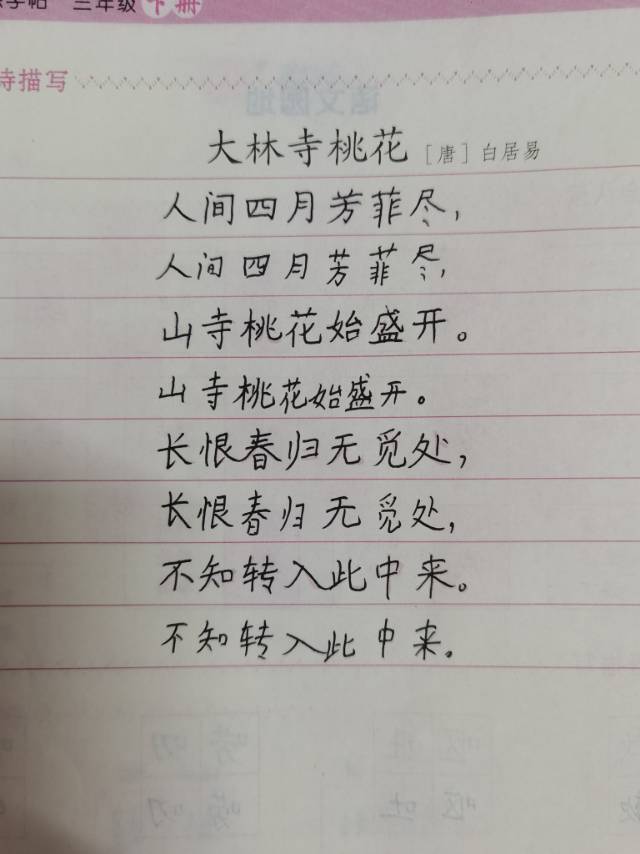 字帖 三年级 下册
诗描写
大林寺桃花 [唐] 白居易
人间四月芳菲尽，
人间四月芳菲尽，
山寺桃花始盛开。
山寺桃花始盛开。
长恨春归无觅处，
长恨春归无觅处，
不知转入此中来。
不知转入此中来。